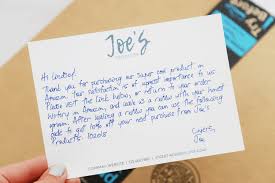 Joe's
Hi Lindsey!
Thank you for purchasing our super cool product on
Amazon. Your satisfaction is of utmost importance to us.
Please visit the link below, or return to your order
history on Amazon, and leave us a review with your honest
opinion. After leaving a review you can use the following
code to get 10% off your next purchase from Joe's
Products: 102015
Cheers,
Joe